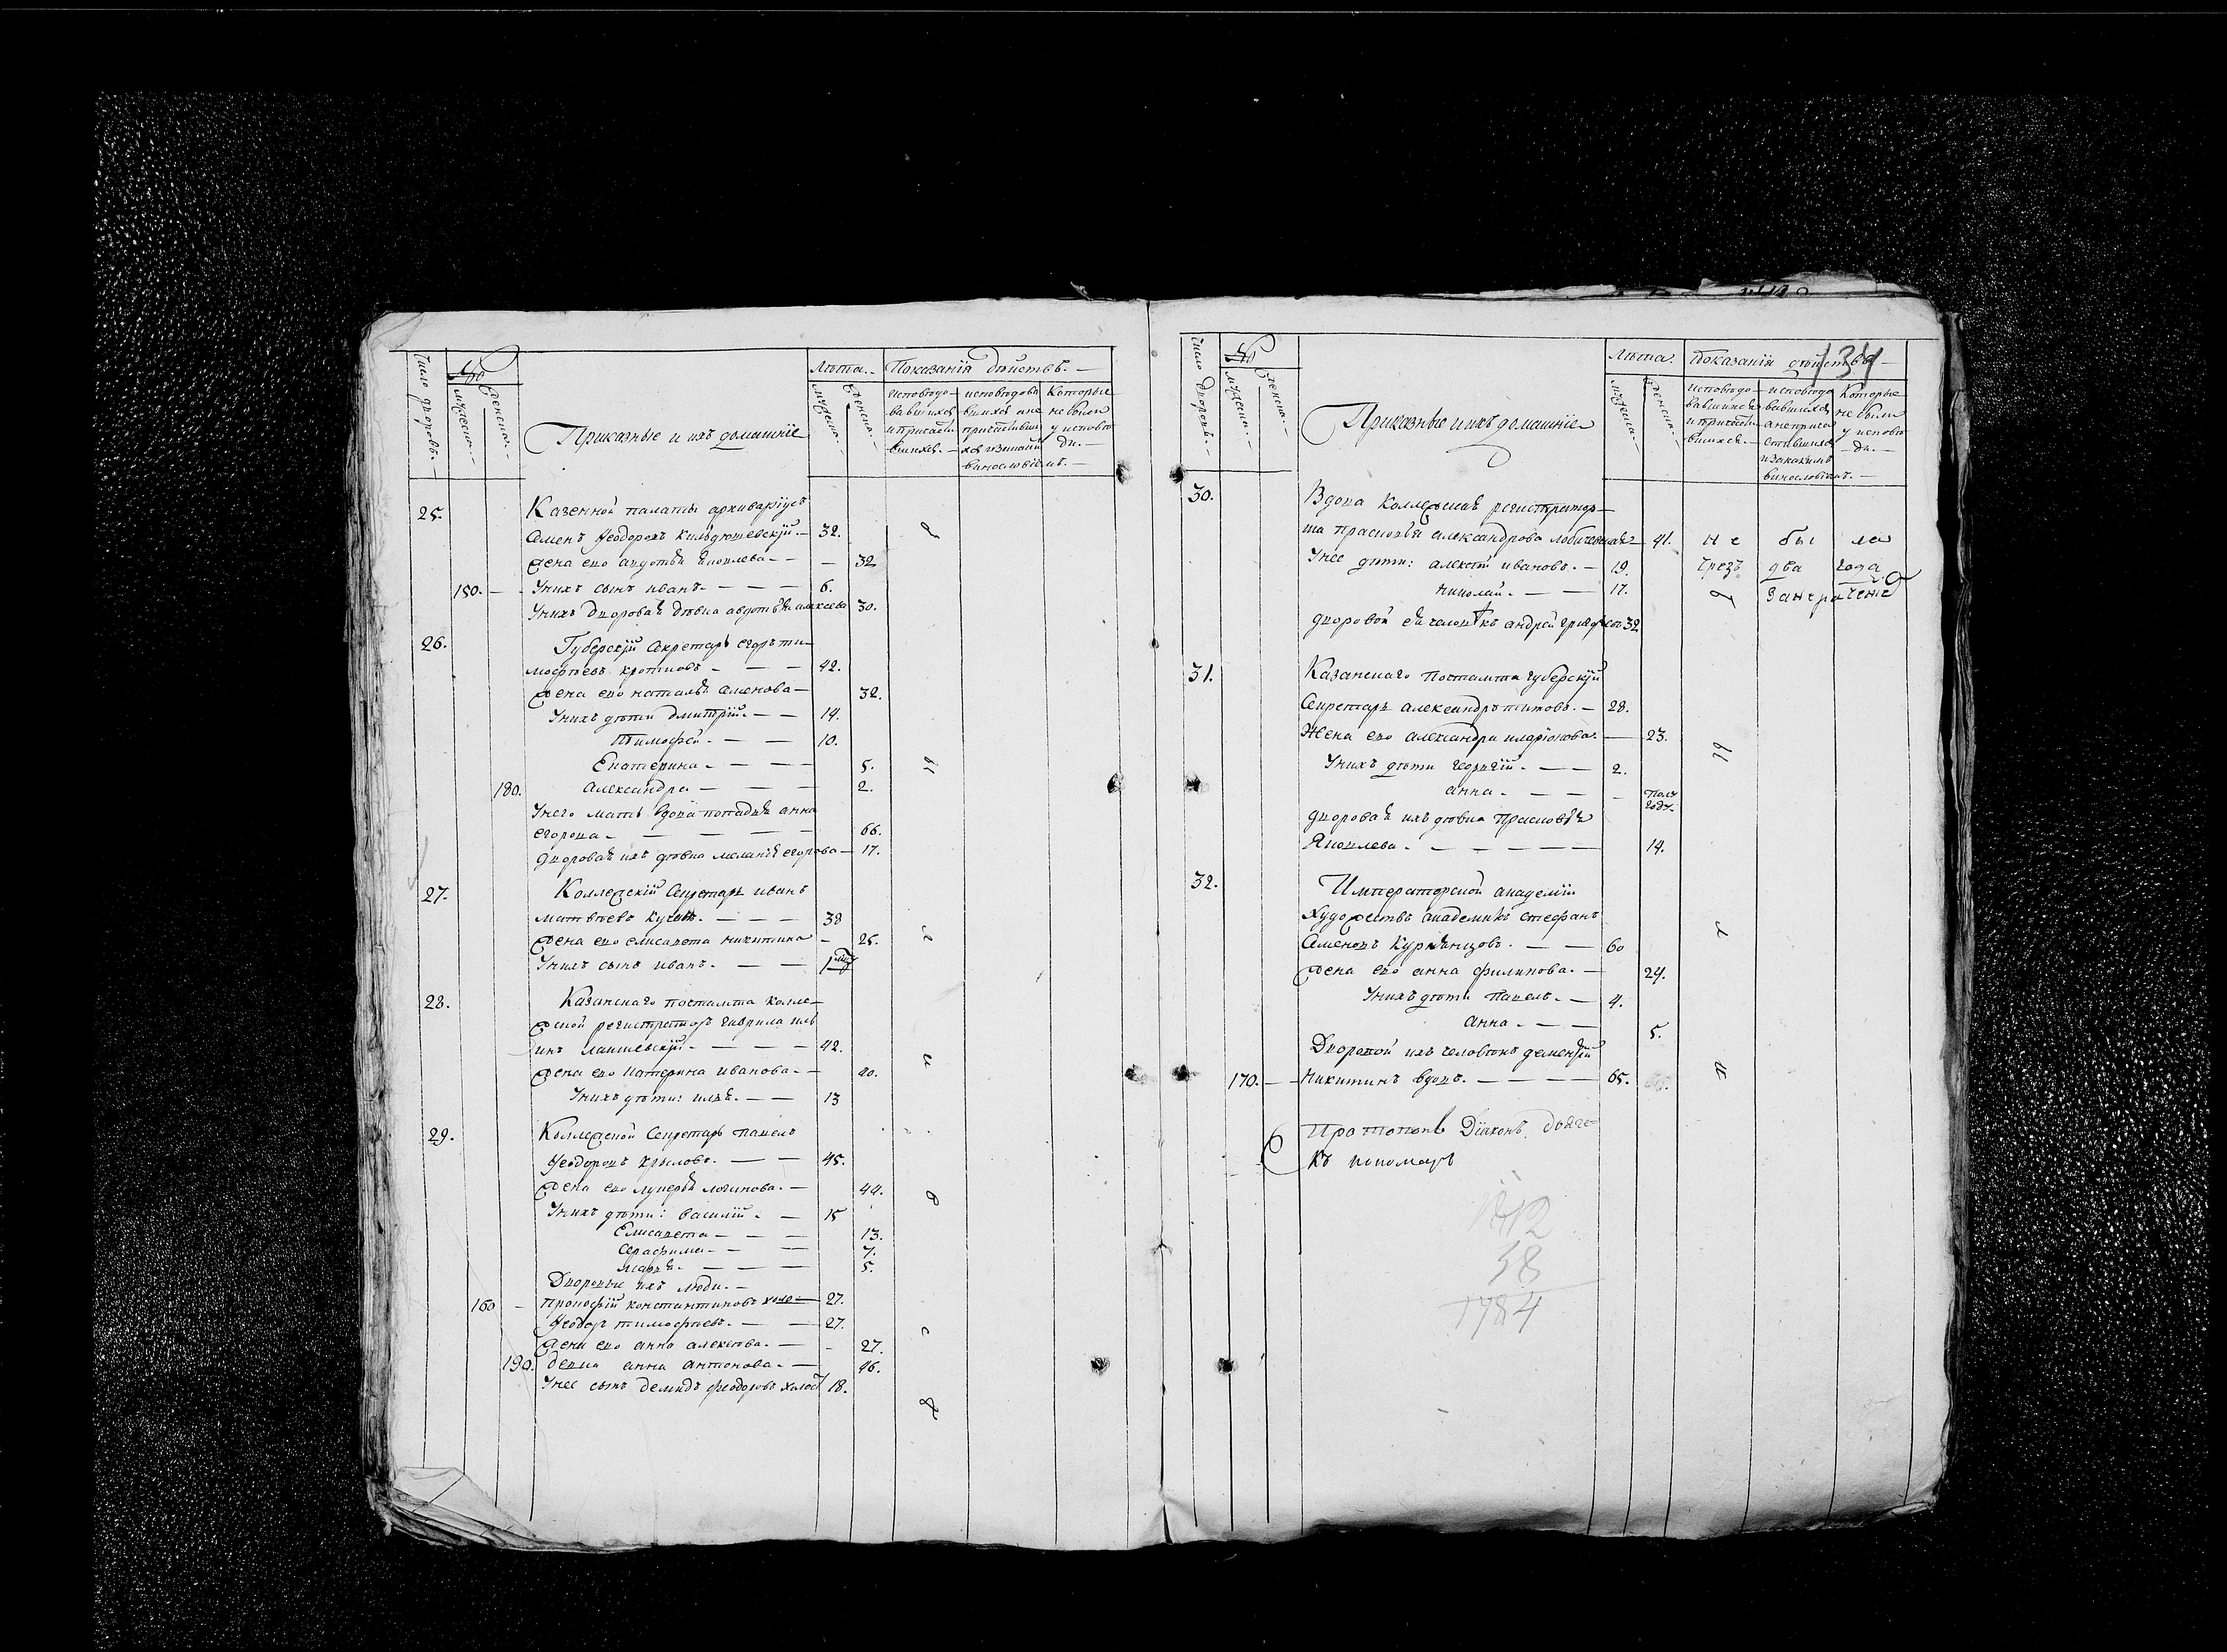 Число дворовъ.
№
мужеска.
женска.
Приказные и ихъ домашніе
Лѣта.
мужеска.
женска.
Показаніи дѣйствъ.
исповѣдовавшихся и причастившихся.
исповѣдовавшихся а не причастившихся и за какимъ винословіемъ.
Которые не были у исповѣди.
25. Казенной палаты архиваріусъ
Семенъ Ѳеодоровъ Кильдюшевскій 32.
Жена его авдотья Яковлева 32
150. У нихъ сынъ иванъ. 6.
У нихъ Дворовая дѣвка авдотья алексѣева 30.
26. Губернскій Секретарь егоръ ти-
моѳѣевъ кротковъ 42.
Жена его наталья семенова 32.
У нихъ дѣти дмитрій. 14.
тимоѳей. 10.
Екатерина 5.
180. александра 2.
У него мать вдова попадья анна
егорова 66.
Дворовая ихъ дѣвка меланія егорова 17.
27. Коллежскій Секретарь иванъ
матвѣевъ 38
Жена его елисавета никитина 25.
У нихъ сынъ иванъ. 1
28. Казанскаго постамта колле-
жской регистраторъ гаврила иль
инъ лаишевскій 42.
Жена его катерина иванова 40.
У нихъ дѣти: илья. 13
29. Коллежской Секретарь павелъ
Ѳеодоровъ крыловъ. 45.
Жена его лукерья логинова. 44.
У нихъ дѣти: василій 15
Елисавета 13.
Серафима 7.
марья 5.
Дворовые ихъ люди.
160 прокофій константиновъ холо 27.
Ѳеодоръ тимофѣевъ. 27.
Жена его анна алексѣева. 27.
190. Девка анна антонова. 46.
У нее сынъ демидъ феодоровъ холост 18.
134
Число дворовъ.
№
мужеска.
женска.
Приказные и ихъ домашніе
Лѣта.
мужеска.
женска.
Показаніи дѣйствъ
исповѣдовавшихся и причастившихся.
исповѣдовавшихся а не причастившихся и за какимъ винословіемъ.
Которые не были у исповѣди.
30. Вдова Коллежскаго регистратор-
ша прасковья александрова лобачевская 41. не бы ла
У нее дѣти: алексѣй ивановъ. 19. Чрезъ два года
николай. 17. За нерачение
дворовой ея человѣкъ андрей 32
31. Казанскаго постамта губернскій
Секретарь александръ титовъ. 28.
Жена его александра иларіонова. 23.
У нихъ дѣти георгій. 2.
анна. полгоду.
дворовая ихъ дѣвка прасковья
Яковлева. 14.
32. Императорской академіи
художествъ академикъ стефанъ
Семеновъ 60
Жена его анна филипова. 24.
У нихъ дѣти павелъ. 4.
анна. 5.
Дворовой ихъ человѣкъ дементій
170. никитинъ вдовъ. 65.
Протопопъ Діаконъ. дьяче-
къ пономарь
38
1784